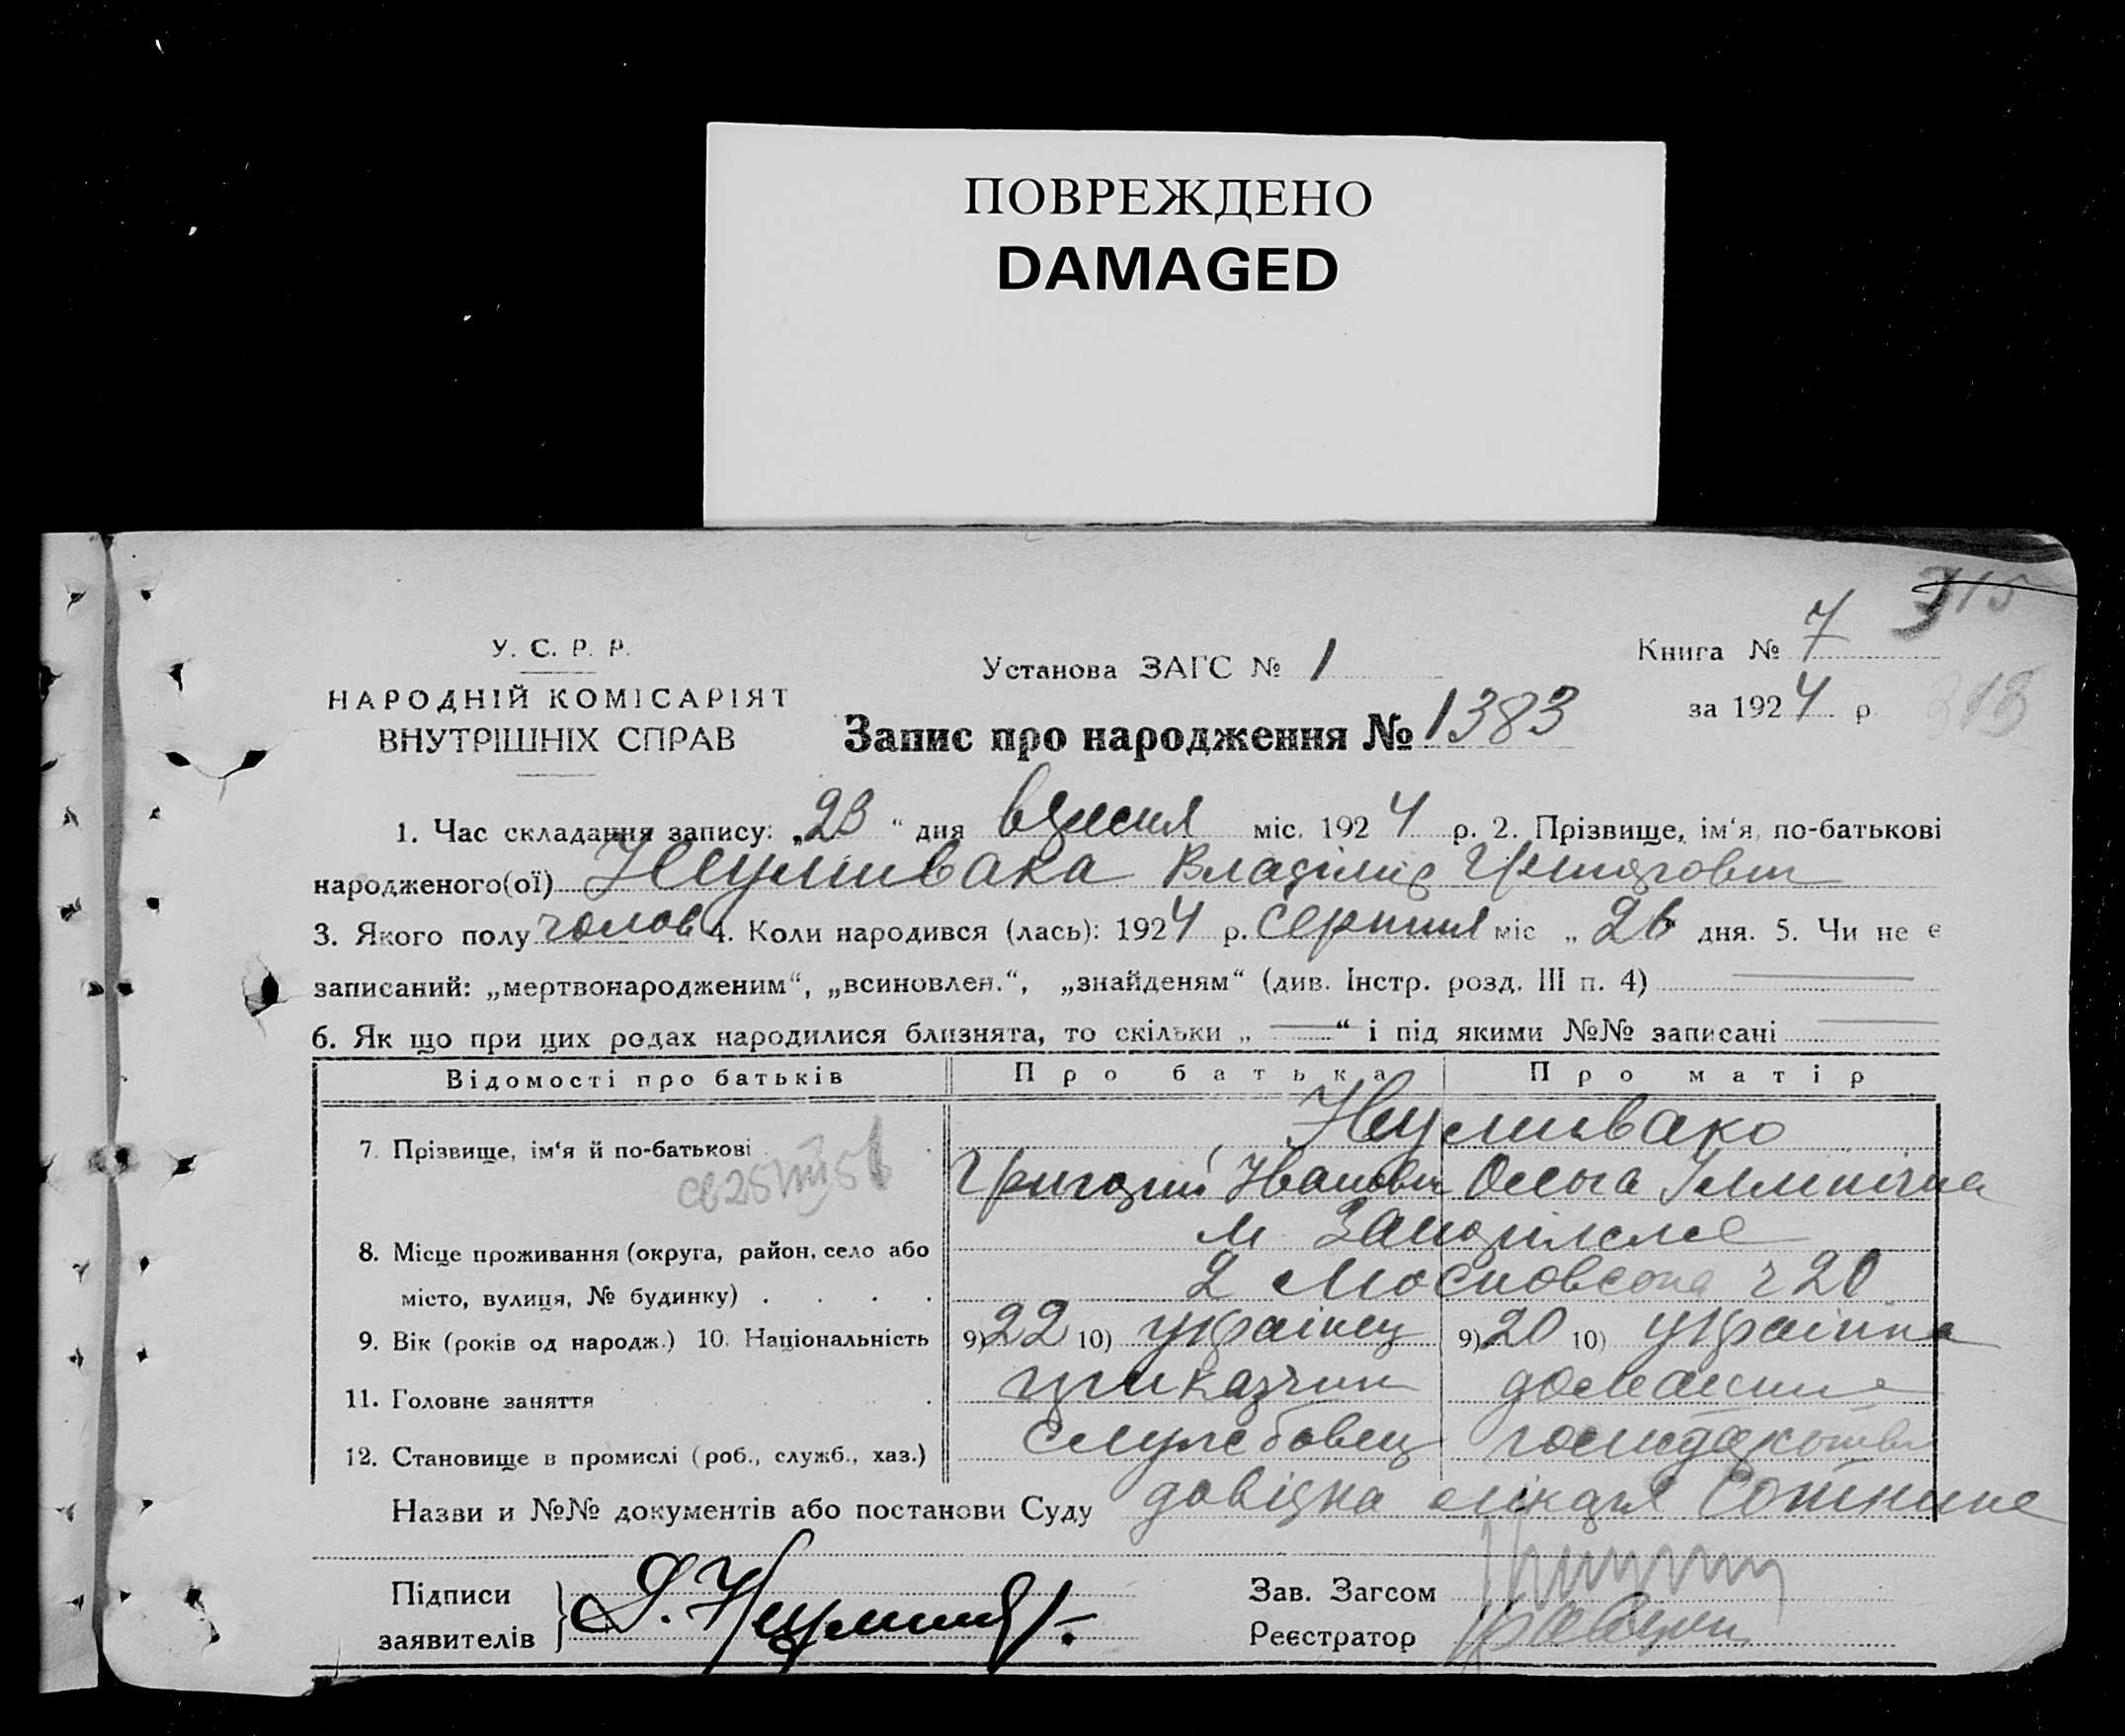 ПОВРЕЖДЕНО
DAMAGED
315
У. С. Р. Р.
НАРОДНІЙ КОМІСАРІЯТ
ВНУТРІШНІХ СПРАВ
Установа ЗАГС № 1
Книга № 7
за 1924 р
Запис про народження № 1383
1. Час складання запису: „23“ дня вересня міс. 1924 р. 2. Прізвище, ім‘я, по-батькові
народженого(ої) Владімір Григорович
3. Якого полу чолов 4. Коли народився (лась): 1924 р. серпня міс „26 дня. 5. Чи не є
записаний: „мертвонародженим“, „всиновлен.“, „знайденям“ (див. Інстр. розд. III п. 4)
6. Як що при цих родах народилися близнята, то скільки „ — “ і під якими №№ записані
Відомості про батьків Про батька Про матір
7. Прізвище, ім‘я й по-батькові
Григорій Іванович Ольга Іллінічна
8. Місце проживання (округа, район, село або
м. Запоріжжє
місто, вулиця, № будинку)
2 Московська 20
9. Вік (років од народж.) 10. Національність 9) 22 10) українец 9) 20 10) українка
11. Головне заняття приказчик домашнє
12. Становище в промислі (роб., служб., хаз.) службовец господарство
Назви и №№ документів або постанови Суду довідка лікаря
Підписи
заявителів
Зав. Загсом
Реєстратор